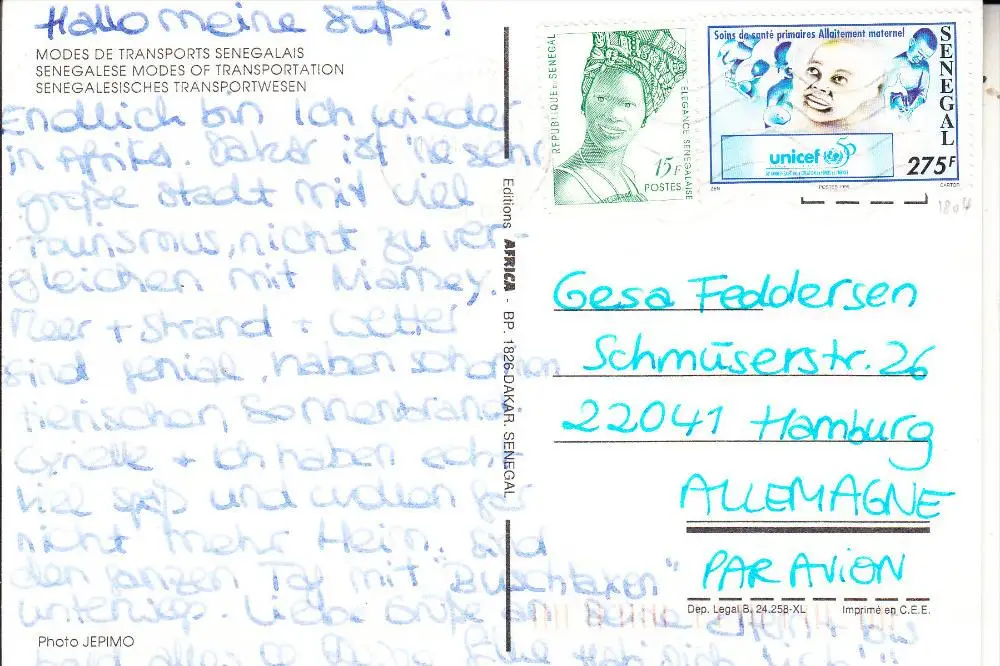 Hallo meine Süße!
MODES DE TRANSPORTS SENEGALAIS
SENEGALESE MODES OF TRANSPORTATION
SENEGALESISCHES TRANSPORTWESEN
Endlich bin ich wieder
in Afrika. Dakar ist ne sehr
große Stadt mit viel
Tourismus, nicht zu ver-
gleichen mit Niamey.
Meer + Strand + Wetter
sind genial, haben schon nen
tierischen Sonnenbrand.
+ ich haben echt
viel Spaß und wollen gar
nicht mehr Heim. Sind
den ganzen Tag mit "Buschtaxen"
unterwegs. Liebe Grüße an Deine Eltern + bis
bald, alles Deine Hab Dich lieb!!!
Photo JEPIMO
Editions AFRICA - BP. 1826 DAKAR. SENEGAL
REPUBLIQUE DU SENEGAL
ELEGANCE SENEGALAISE
15F
POSTES
Soins de santé primaires Allaitement maternel
SENEGAL
unicef 50
275F
POSTES
CARTOR
Gesa Feddersen
Schmüserstr. 26
22041 Hamburg
ALLEMAGNE
PAR AVION
Dep. Legal B. 24.258-XL Imprimé en C.E.E.